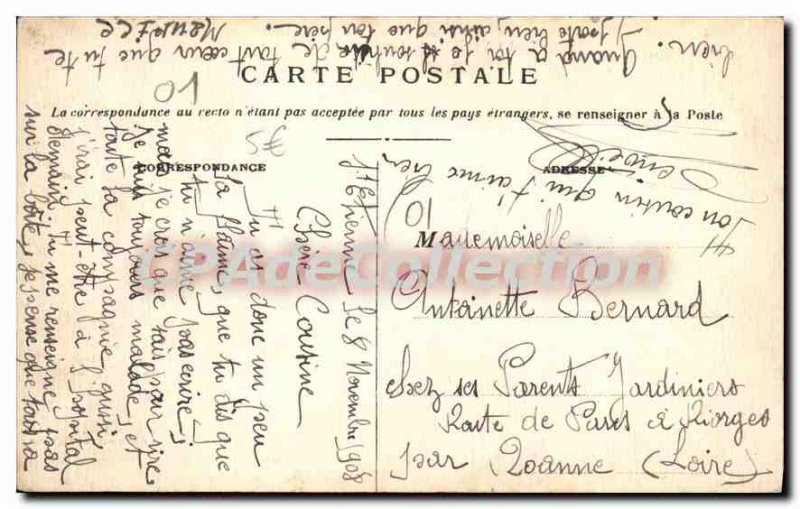 CARTE POSTALE
La correspondance au recto n'étant pas acceptée par tous les pays étrangers, se renseigner à la Poste
CORRESPONDANCE
ADRESSE
01
5€
01
Mademoiselle
Antoinette Bernard
chez ses Parents Jardiniers
Route de Paris à Riorges
par Roanne (Loire)
CPAdeCollection
St Etienne le 8 Novembre 1908
Chère Cousine
Tu as donc un peu
la flaume, que tu dis que
tu n'aime pas ecrire;
moi je crois que tais pour rire
Je suis toujours malade, et
toute la compagnie, aussi,
j'irai peut-être à l'hopital
demain. Tu me renseigne pas
sur la boîte, je pense que tout va
bien.
Quand a toi je souhaite de tout cœur que tu te
porte bien, ainsi que ton père.
MAURICE
Ton cousin qui t'aime bien